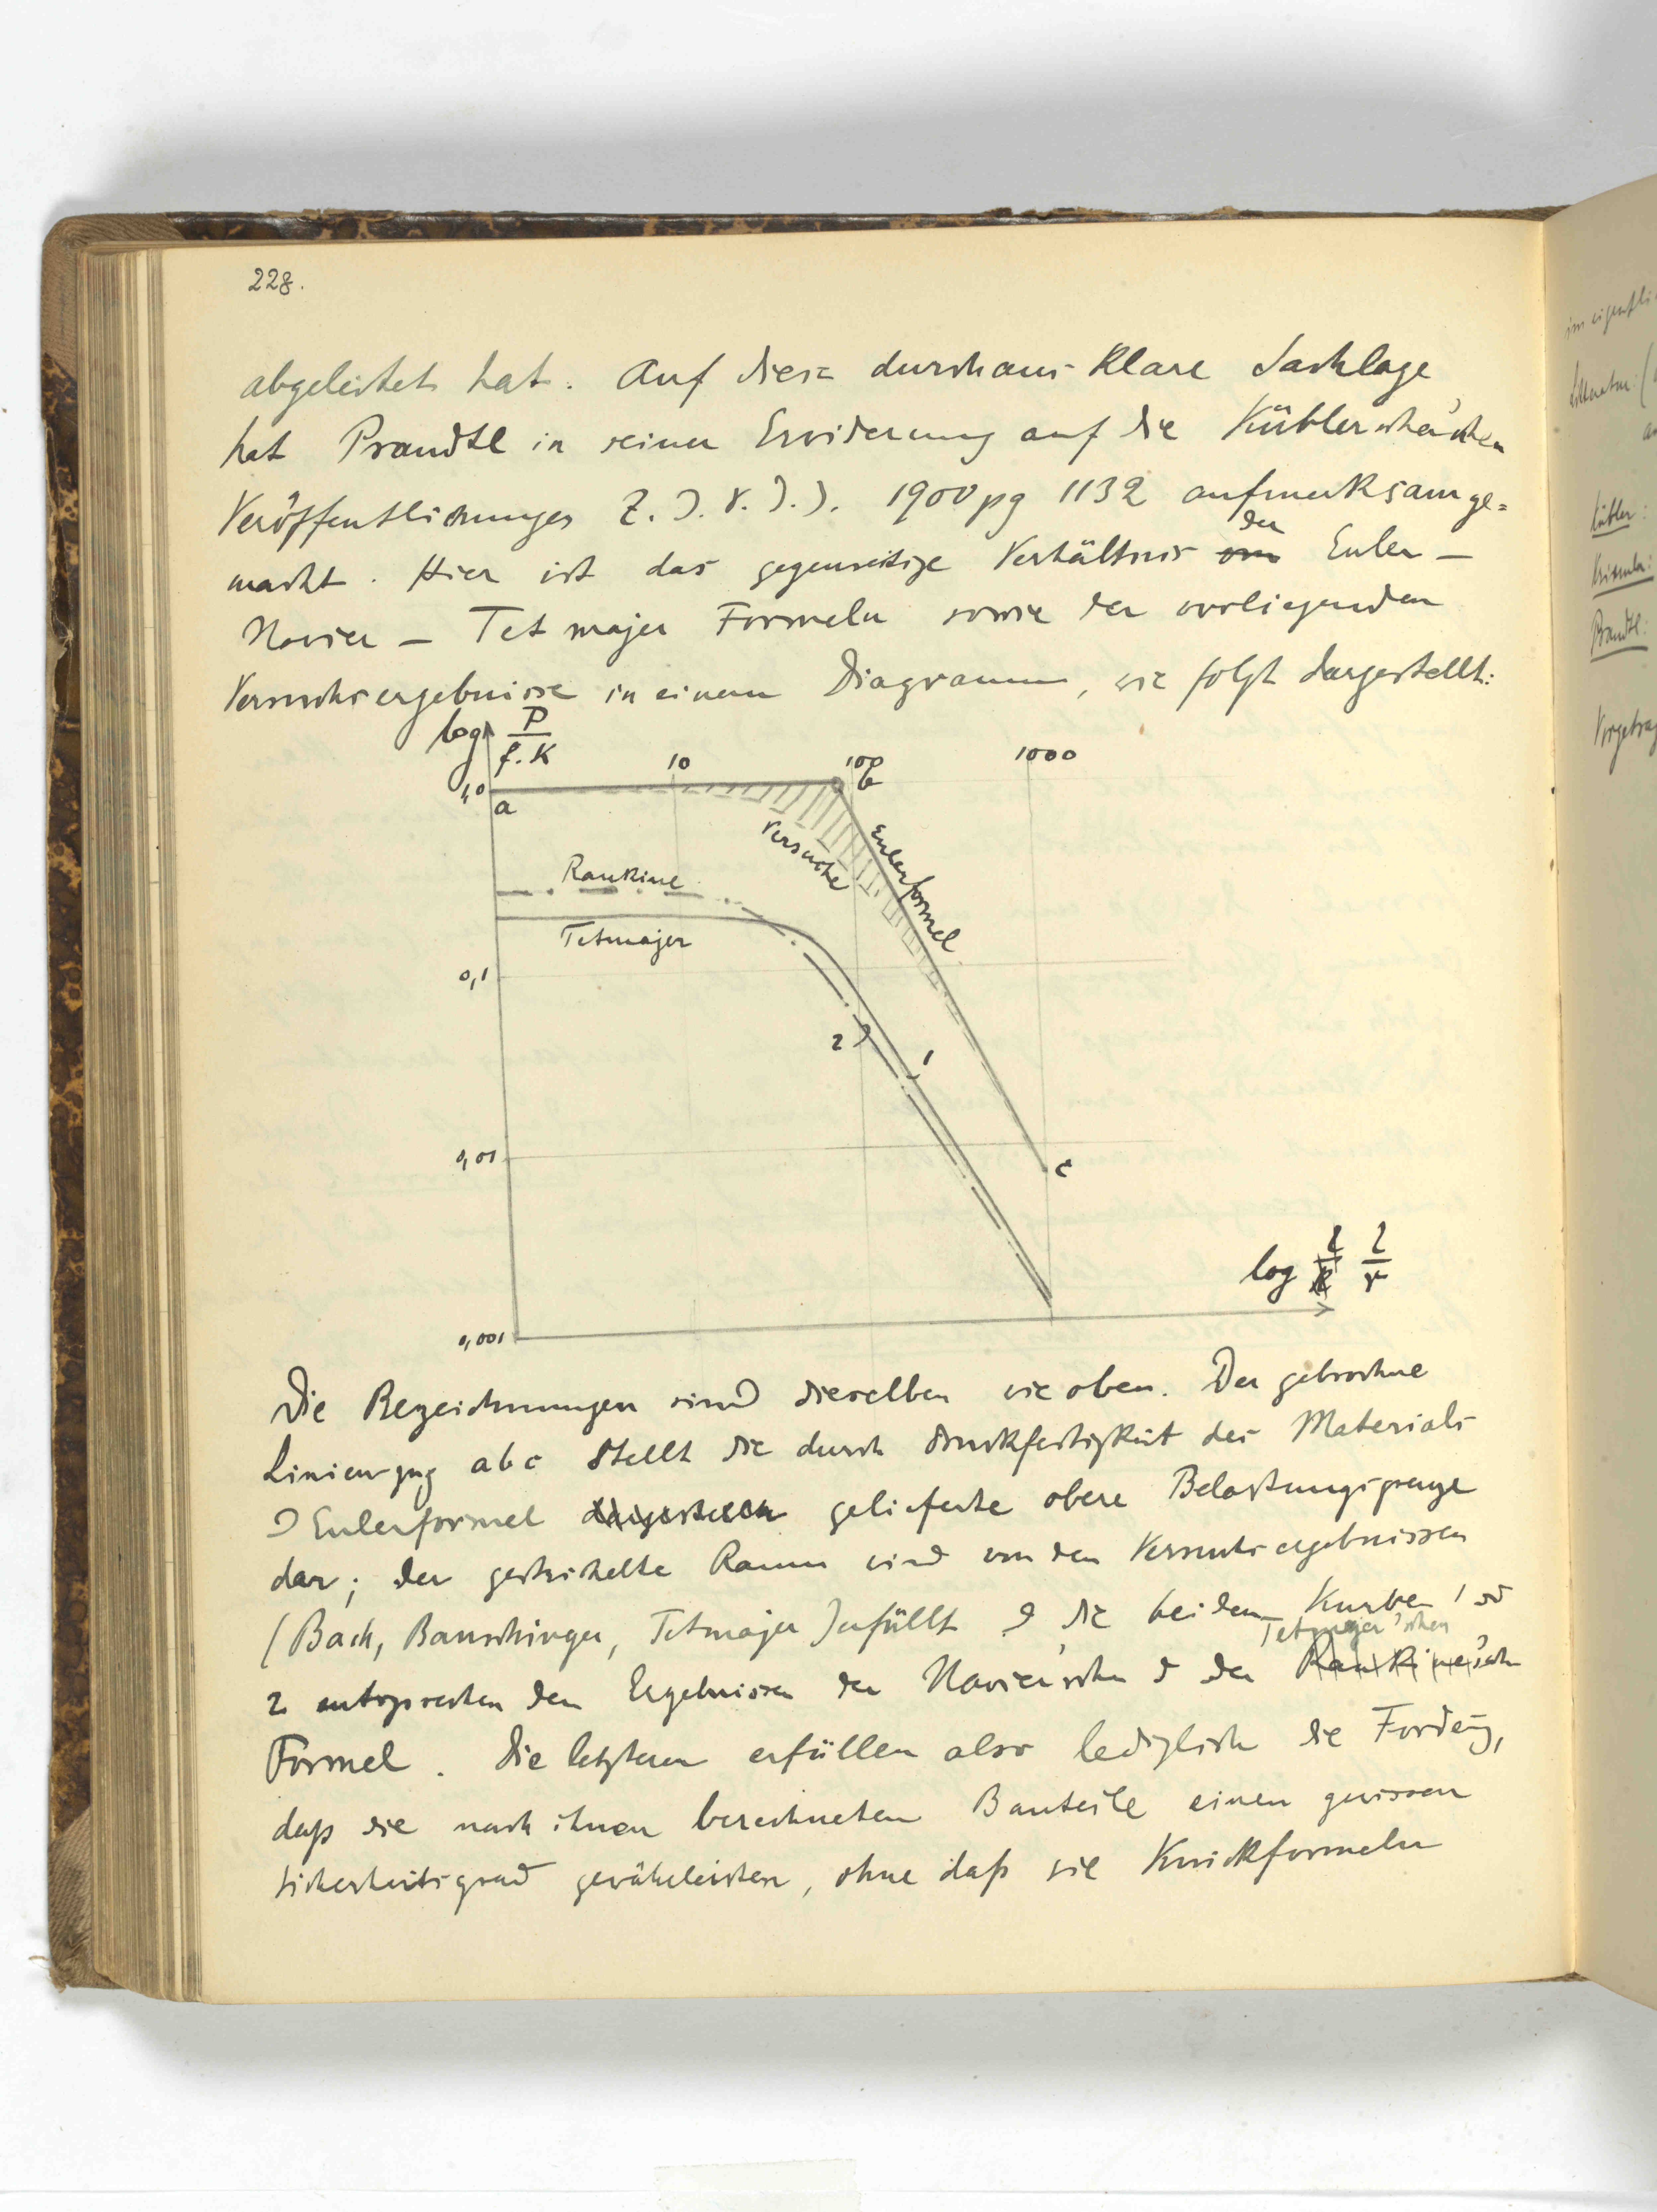 228.
abgeleitet hat. Auf diese durchaus klare Sachlage
hat Prandtl in seiner Erwiderung auf die Kübler'schen
Veröffentlichungen Z. d. V. d. I. 1900 pg 1132 aufmerksam ge=
macht. Hier ist das gegenseitige Verhältnis der Euler –
Navier – Tetmajer Formeln sowie der vorliegenden
Versuchsergebnisse in einem Diagramm, wie folgt dargestellt:
log P/f.K
10
100
1000
1,0
a
b
Versuche
Eulerformel
Rankine
Tetmajer
0,1
2
1
0,01
c
log l/r
0,001
Die Bezeichnungen sind dieselben wie oben. Der gebrochne
Linienzug abc stellt die durch Druckfestigkeit des Materials
& Eulerformel gelieferte obere Belastungsgrenze
dar; der gestrichelte Raum wird von den Versuchsergebnissen
(Bach, Bauschinger, Tetmajer) erfüllt & die beiden Kurven 1 &
Tetmajer'schen
2 entsprechen den Ergebnissen der Navier'schen & der Rankine'schen
Formel. Die letzteren erfüllen also lediglich die Forderg,
daß die nach ihnen berechneten Bauteile einen gewissen
Sicherheitsgrad gewährleisten, ohne daß sie Knickformeln
Kübler:
Prandtl: